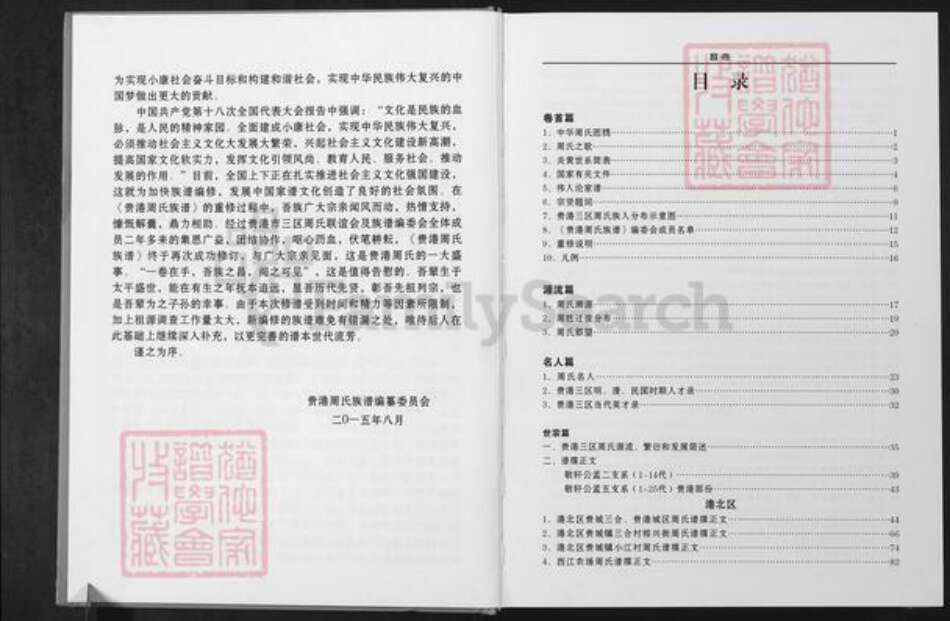 为实现小康社会奋斗目标和构建和谐社会，实现中华民族伟大复兴的中
国梦做出更大的贡献．
中国共产党第十八次全国代表大会报告中强调：“文化是民族的血
脉，是人民的精神家园．全面建成小康社会，实现中华民族伟大复兴，
必须推动社会主义文化大发展大繁荣，兴起社会主义文化建设新高潮，
提高国家文化软实力，发挥文化引领风尚、教育人民、服务社会、推动
发展的作用．”目前，全国上下正在扎实推进社会主义文化强国建设，
这就为加快族谱编修，发展中国家谱文化创造了良好的社会氛围．在
《贵港周氏族谱》的重修过程中，吾族广大宗亲闻风而动，热情支持，
慷慨解囊，鼎力相助．经过贵港市三区周氏联谊会及族谱编委会全体成
员二年多来的集思广益，团结协作，呕心沥血，伏笔耕耘，《贵港周氏
族谱》终于再次成功修订，与广大宗亲见面，这是贵港周氏的一大盛
事．“一卷在手，吾族之昌，阅之可见”，这是值得告慰的．吾辈生于
太平盛世，能在有生之年抚本追远，显吾历代先贤，彰吾先祖列宗，也
是吾辈为之子孙的幸事．由于本次修谱受到时间和精力等因素所限制，
加上祖源调查工作量太大，新编修的族谱难免有错漏之处，唯待后人在
此基础上继续深入补充，以更完善的谱本世代流芳．
谨之为序．
贵港周氏族谱编纂委员会
二〇一五年八月
FamilySearch
目录
卷首篇
1．中华周氏图腾 1
2．周氏之歌 2
3．炎黄世系简表 3
4．国家有关文件 4
5．伟人论家谱 6
6．宗贤题词 9
7．贵港三区周氏族人分布示意图 11
8．《贵港周氏族谱》编委会成员名单 12
9．重修说明 15
10．凡例 16
源流篇
1．周氏溯源 17
2．周姓迁徙分布 19
3．周氏郡望 20
名人篇
1．周氏名人 23
2．贵港三区明、清、民国时期人才录 30
3．贵港三区当代英才录 32
世宗篇
一．贵港三区周氏源流、繁衍和发展简述 35
二．谱牒正文
敬轩公孟二支系（1-14代） 39
敬轩公孟五支系（1-25代）贵港部份 43
港北区
1．港北区贵城三合、贵港城区周氏谱牒正文 44
2．港北区贵城镇三合村裕兴街周氏谱牒正文 66
3．港北区贵城镇小江村周氏谱牒正文 74
4．西江农场周氏谱牒正文 82